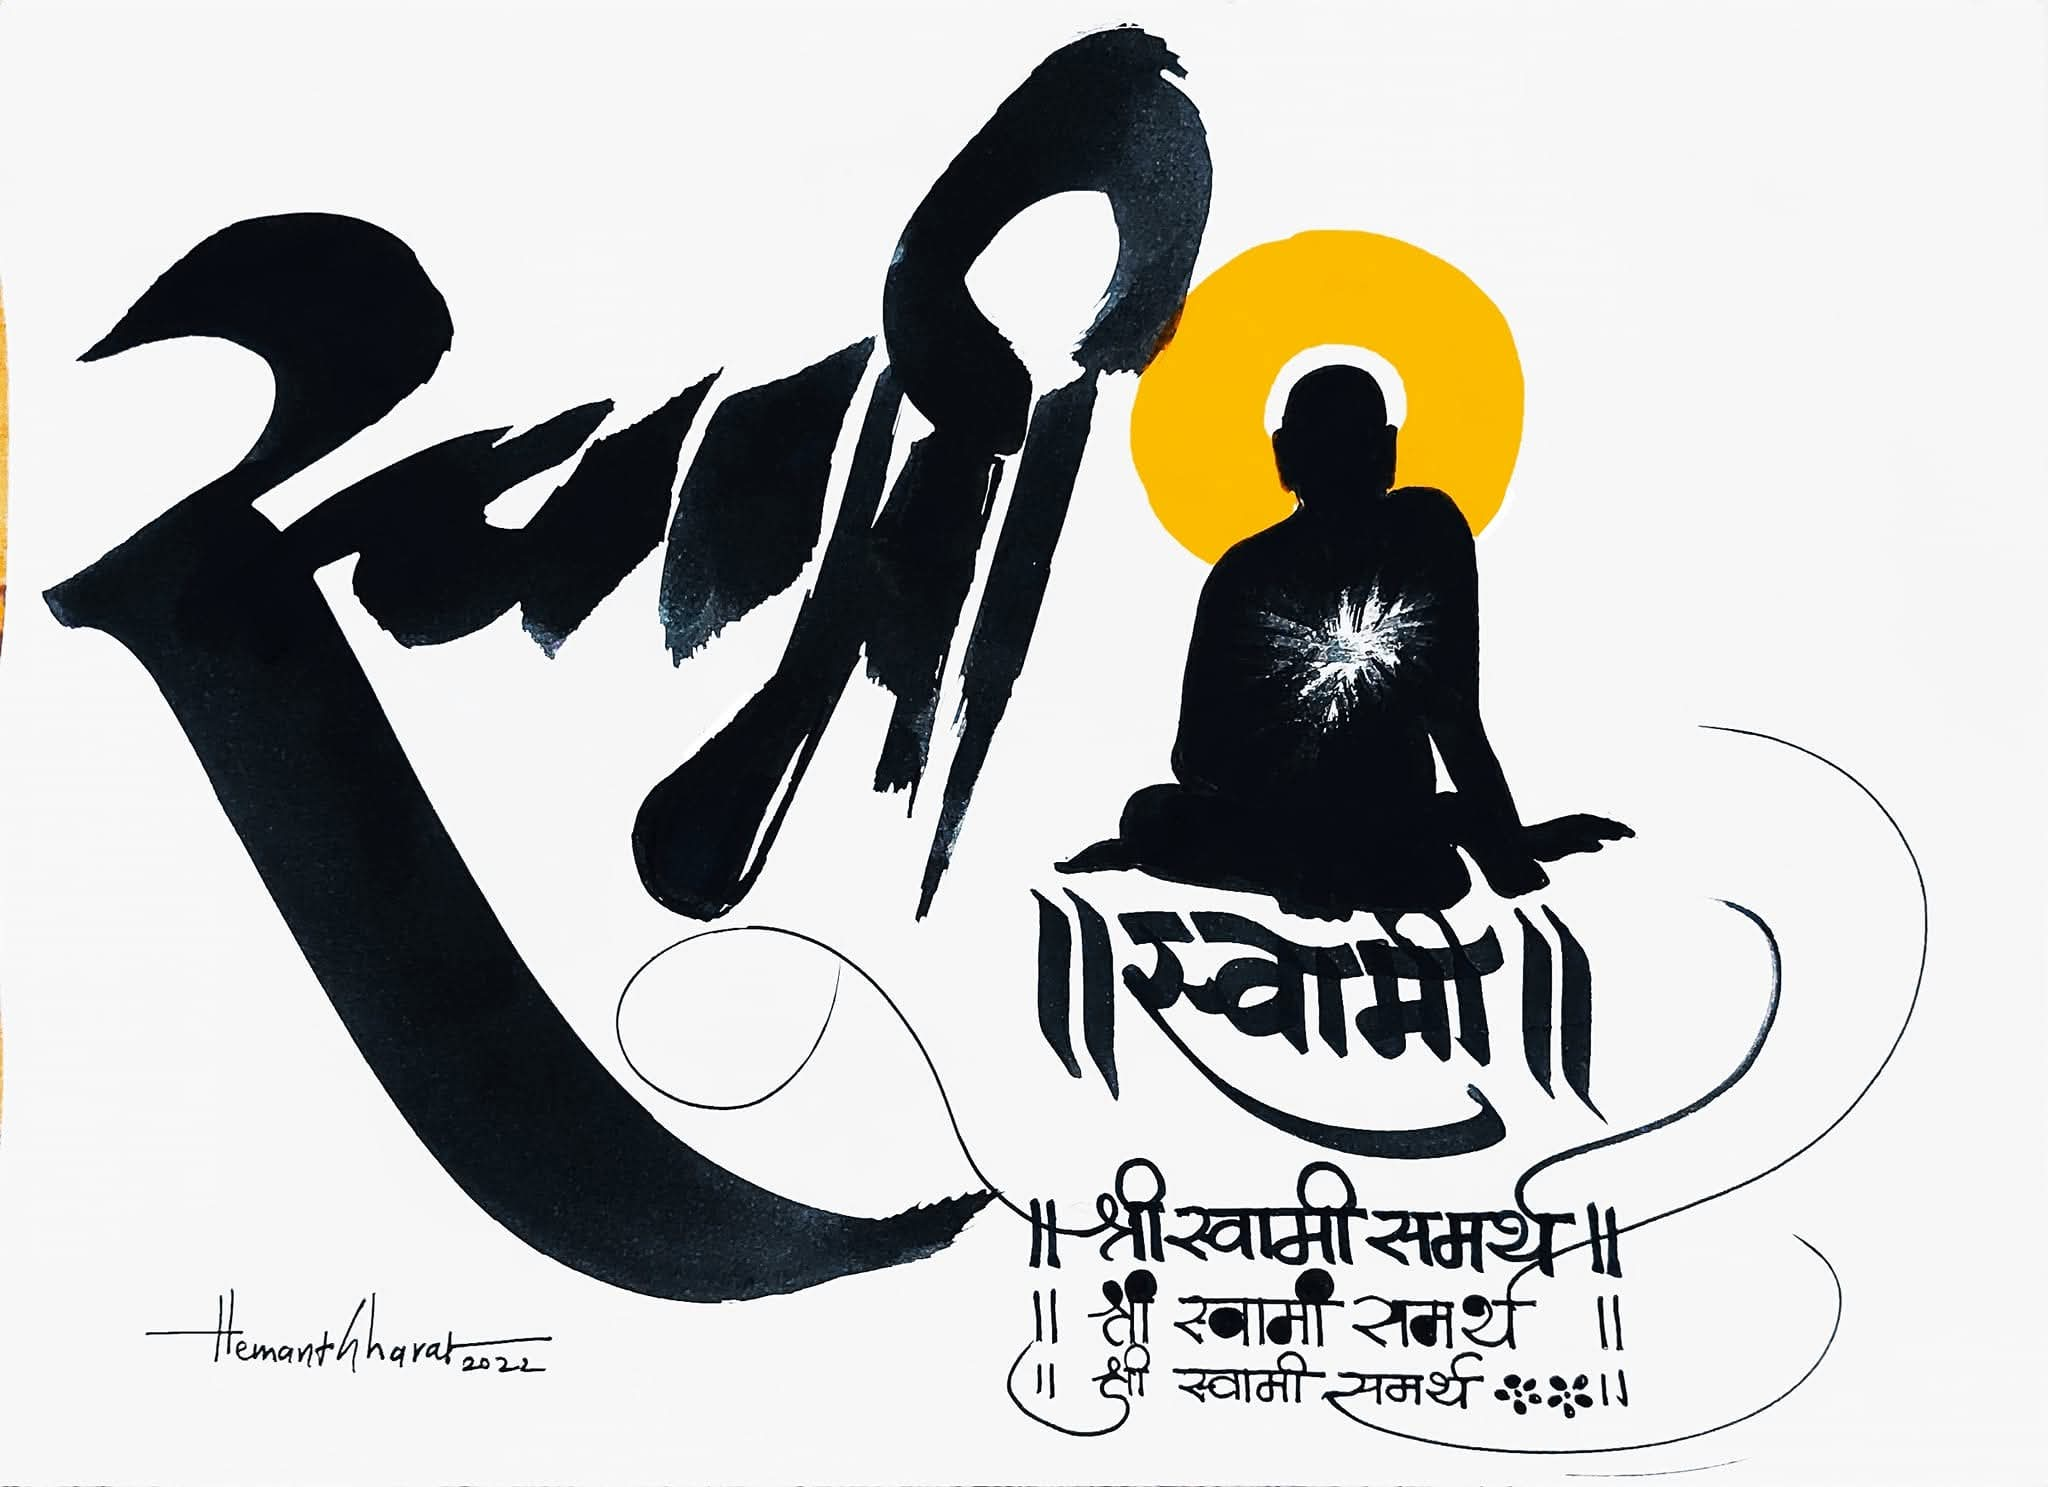 ॥ स्वामी ॥
॥ श्री स्वामी समर्थ ॥
॥ श्री स्वामी समर्थ ॥
॥ श्री स्वामी समर्थ ॥
Hemant Gharat 2022